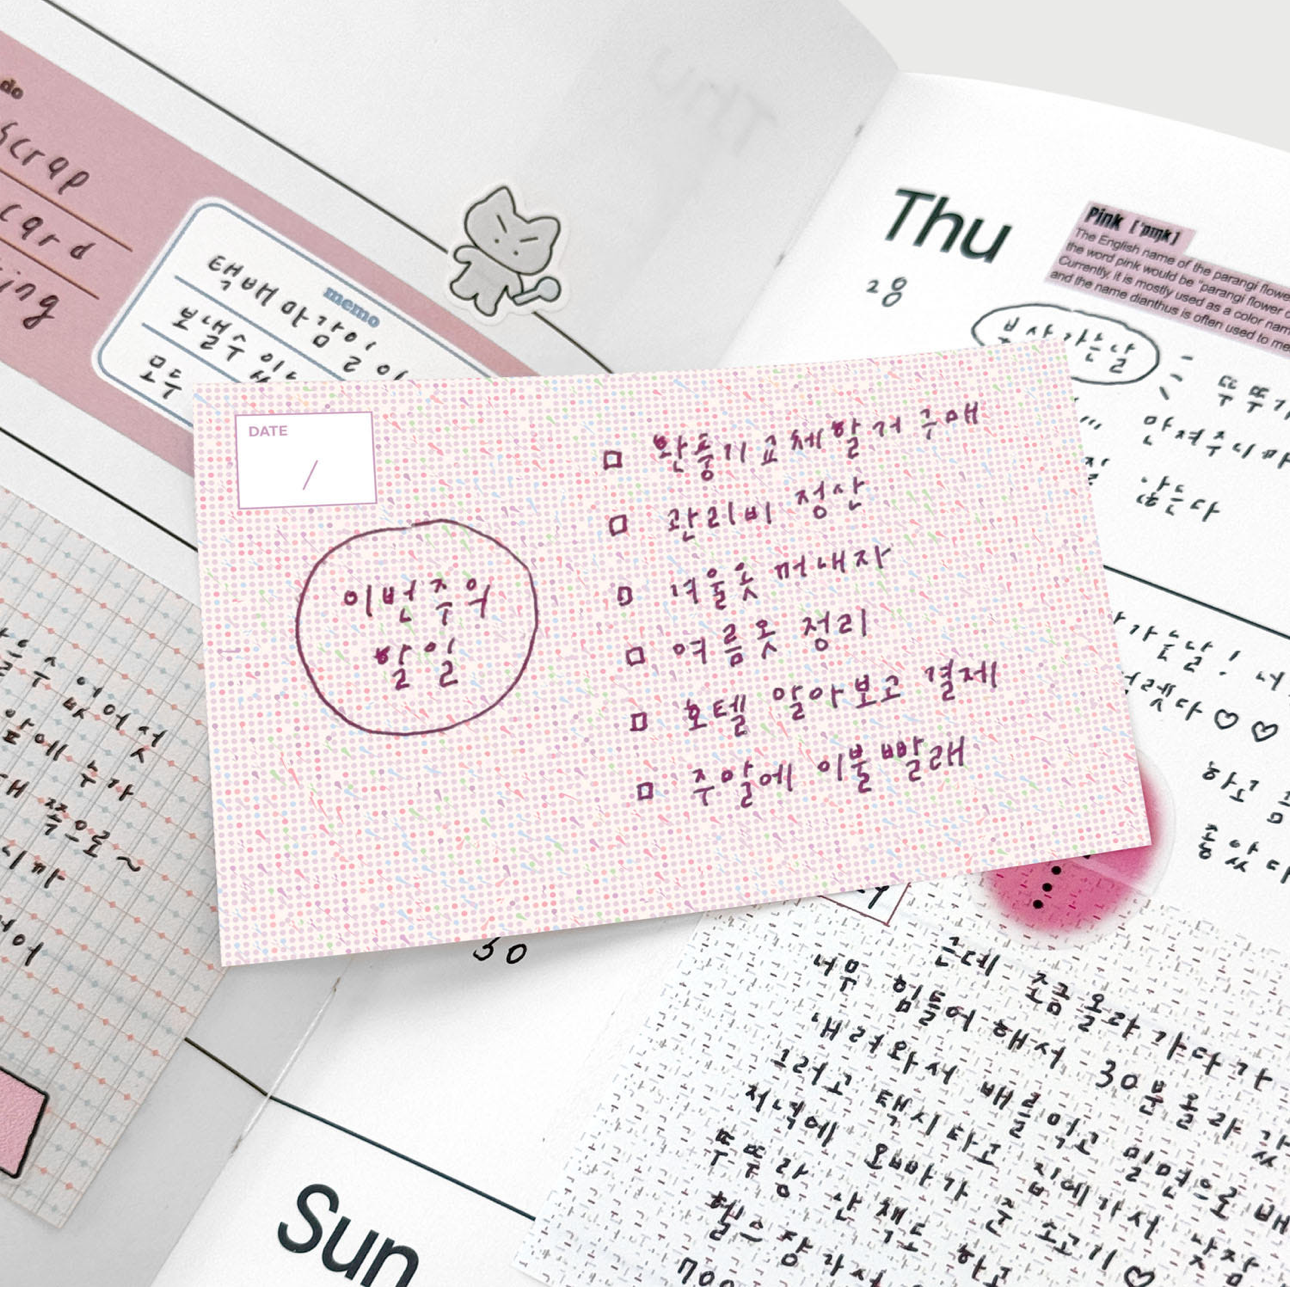 do
scrap
card
memo
택배 마감일이
보낼 수 있
모두
Thu
28
Pink ['pɪŋk]
The English name of the parangi flowe
the word pink would be "parangi flower
Currently, it is mostly used as a color nam
and the name dianthus is often used to me
부산 가는 날
뚜뚜
않는다
DATE
/
이번주의
할일
환풍기 교체할거 구매
관리비 정산
겨울옷 꺼내자
여름옷 정리
호텔 알아보고 결제
주말에 이불 빨래
가는 날! 내
렜다 ♡ ♡
하고
좋았다
앞에 누가
쭉으로~
니까
30
근데 조금 올라가다가
너무 힘들어해서 30분 올라갔
내려와서 배를 먹고 밀면으로 배
그러고 택시타고 집에가서 낮잠
저녁에 오빠가 준 소고기 ♡
뚜뚜랑 산책도 하고
헬스장 가서
700
Sun